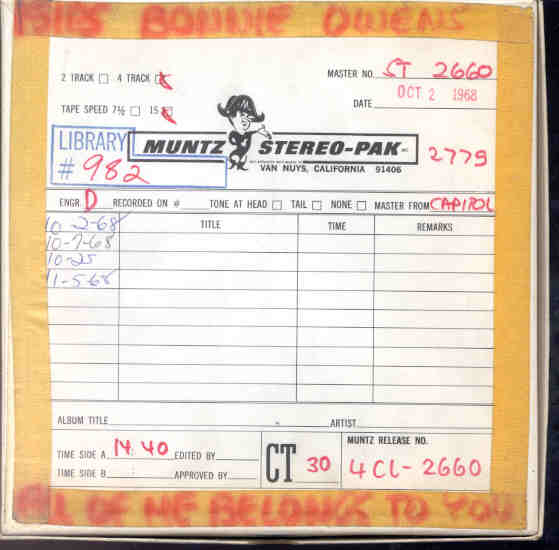 BONNIE OWENS
2 TRACK 4 TRACK
MASTER NO. ST 2660
OCT 2 1968
DATE
TAPE SPEED 7½ 15
LIBRARY
# 982
MUNTZ STEREO-PAK INC.
VAN NUYS, CALIFORNIA 91406
2779
ENGR. D RECORDED ON # TONE AT HEAD TAIL NONE MASTER FROM CAPITOL
TITLE TIME REMARKS
10-2-68
10-7-68
10-25
11-5-68
ALBUM TITLE ARTIST
TIME SIDE A 14:40 EDITED BY
TIME SIDE B APPROVED BY
CT 30
MUNTZ RELEASE NO.
4CL-2660
ALL OF ME BELONGS TO YOU